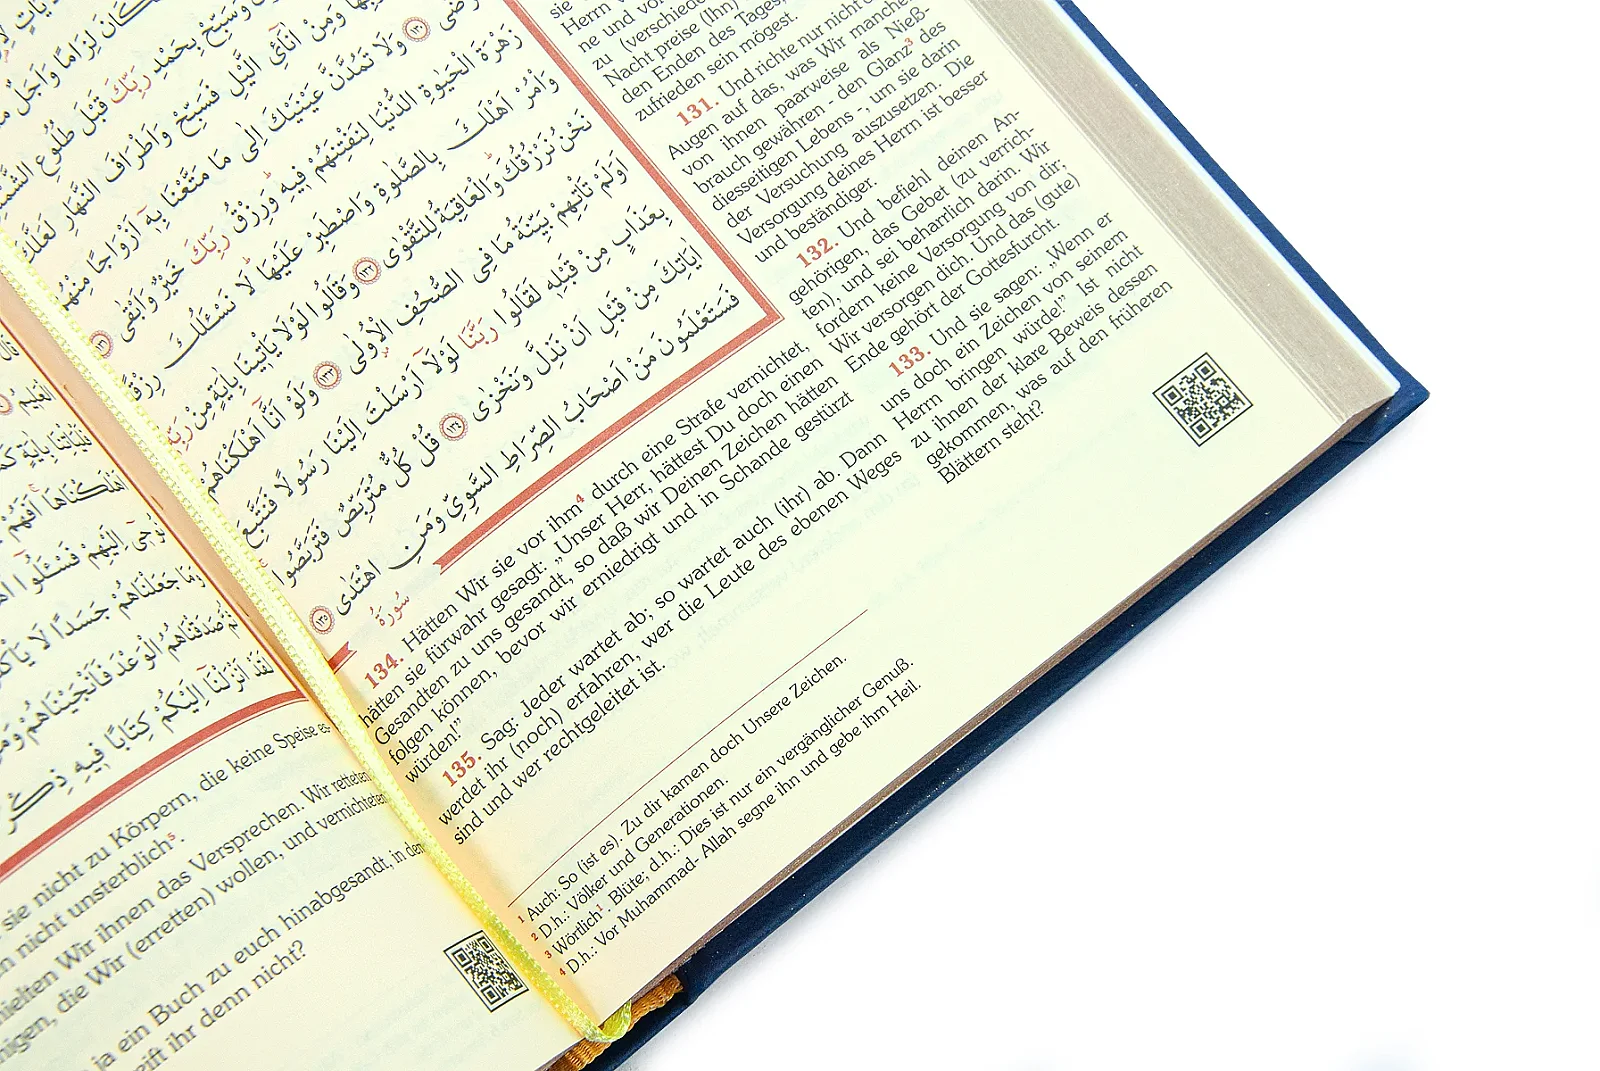 لَكَانَ لِزَامًا وَاَجَلٌ
وَسَبِّحْ بِحَمْدِ رَبِّكَ قَبْلَ طُلُوعِ الشَّمْسِ
وَمِنْ اٰنَآئِ الَّيْلِ فَسَبِّحْ وَاَطْرَافَ النَّهَارِ لَعَلَّكَ
تَرْضٰى ﴿١٣٠﴾ وَلَا تَمُدَّنَّ عَيْنَيْكَ اِلٰى مَا مَتَّعْنَا بِهٖٓ اَزْوَاجًا مِنْهُمْ
زَهْرَةَ الْحَيٰوةِ الدُّنْيَا لِنَفْتِنَهُمْ فٖيهِ وَرِزْقُ رَبِّكَ خَيْرٌ وَاَبْقٰى ﴿١٣١﴾
وَأْمُرْ اَهْلَكَ بِالصَّلٰوةِ وَاصْطَبِرْ عَلَيْهَا لَا نَسْـَٔلُكَ رِزْقًا
نَحْنُ نَرْزُقُكَ وَالْعَاقِبَةُ لِلتَّقْوٰى ﴿١٣٢﴾ وَقَالُوا لَوْلَا يَأْتٖينَا بِاٰيَةٍ مِنْ رَبِّهٖ
اَوَلَمْ تَأْتِهِمْ بَيِّنَةُ مَا فِى الصُّحُفِ الْاُولٰى ﴿١٣٣﴾ وَلَوْ اَنَّٓا اَهْلَكْنَاهُمْ
بِعَذَابٍ مِنْ قَبْلِهٖ لَقَالُوا رَبَّنَا لَوْلَٓا اَرْسَلْتَ اِلَيْنَا رَسُولًا فَنَتَّبِعَ
اٰيَاتِكَ مِنْ قَبْلِ اَنْ نَذِلَّ وَنَخْزٰى ﴿١٣٤﴾ قُلْ كُلٌّ مُتَرَبِّصٌ فَتَرَبَّصُوا
فَسَتَعْلَمُونَ مَنْ اَصْحَابُ الصِّرَاطِ السَّوِىِّ وَمَنِ اهْتَدٰى ﴿١٣٥﴾
سُورَةُ
sie
Herrn
ne und vor
zu (verschiede
Nacht preise (Ihn)
den Enden des Tages,
zufrieden sein mögest.
131. Und richte nur nicht
Augen auf das, was Wir manchen
von ihnen paarweise als Nieß-
brauch gewähren - den Glanz³ des
diesseitigen Lebens -, um sie darin
der Versuchung auszusetzen. Die
Versorgung deines Herrn ist besser
und beständiger.
132. Und befiehl deinen An-
gehörigen, das Gebet (zu verrich-
ten), und sei beharrlich darin. Wir
fordern keine Versorgung von dir;
Wir versorgen dich. Und das (gute)
Ende gehört der Gottesfurcht.
133. Und sie sagen: „Wenn er
uns doch ein Zeichen von seinem
Herrn bringen würde!" Ist nicht
zu ihnen der klare Beweis dessen
gekommen, was auf den früheren
Blättern steht?
134. Hätten Wir sie vor ihm⁴ durch eine Strafe vernichtet,
hätten sie fürwahr gesagt: „Unser Herr, hättest Du doch einen
Gesandten zu uns gesandt, so daß wir Deinen Zeichen hätten
folgen können, bevor wir erniedrigt und in Schande gestürzt
würden!"
135. Sag: Jeder wartet ab; so wartet auch (ihr) ab. Dann
werdet ihr (noch) erfahren, wer die Leute des ebenen Weges
sind und wer rechtgeleitet ist.
¹ Auch: So (ist es). Zu dir kamen doch Unsere Zeichen.
² D.h.: Völker und Generationen.
³ Wörtlich¹. Blüte; d.h.: Dies ist nur ein vergänglicher Genuß.
⁴ D.h.: Vor Muhammad- Allah segne ihn und gebe ihm Heil.
sie nicht zu Körpern, die keine Speise es-
nicht unsterblich⁵.
hielten Wir ihnen das Versprechen. Wir retteten
nigen, die Wir (erretten) wollen, und vernichteten
ja ein Buch zu euch hinabgesandt, in dem
ihr denn nicht?